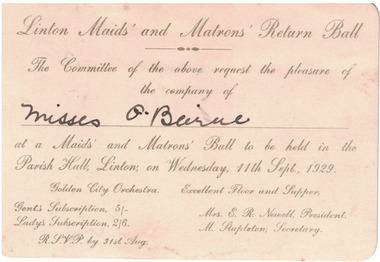 Linton Maids' and Matrons' Return Ball
The Committee of the above request the pleasure of
the company of
Misses O'Beirne
at a Maids' and Matrons' Ball to be held in the
Parish Hall, Linton, on Wednesday, 11th Sept., 1929.
Golden City Orchestra. Excellent Floor and Supper.
Gent's Subscription, 5/-
Lady's Subscription, 2/6.
Mrs. E. R. Newell, President.
M. Stapleton, Secretary.
R.S.V.P. by 31st Aug.